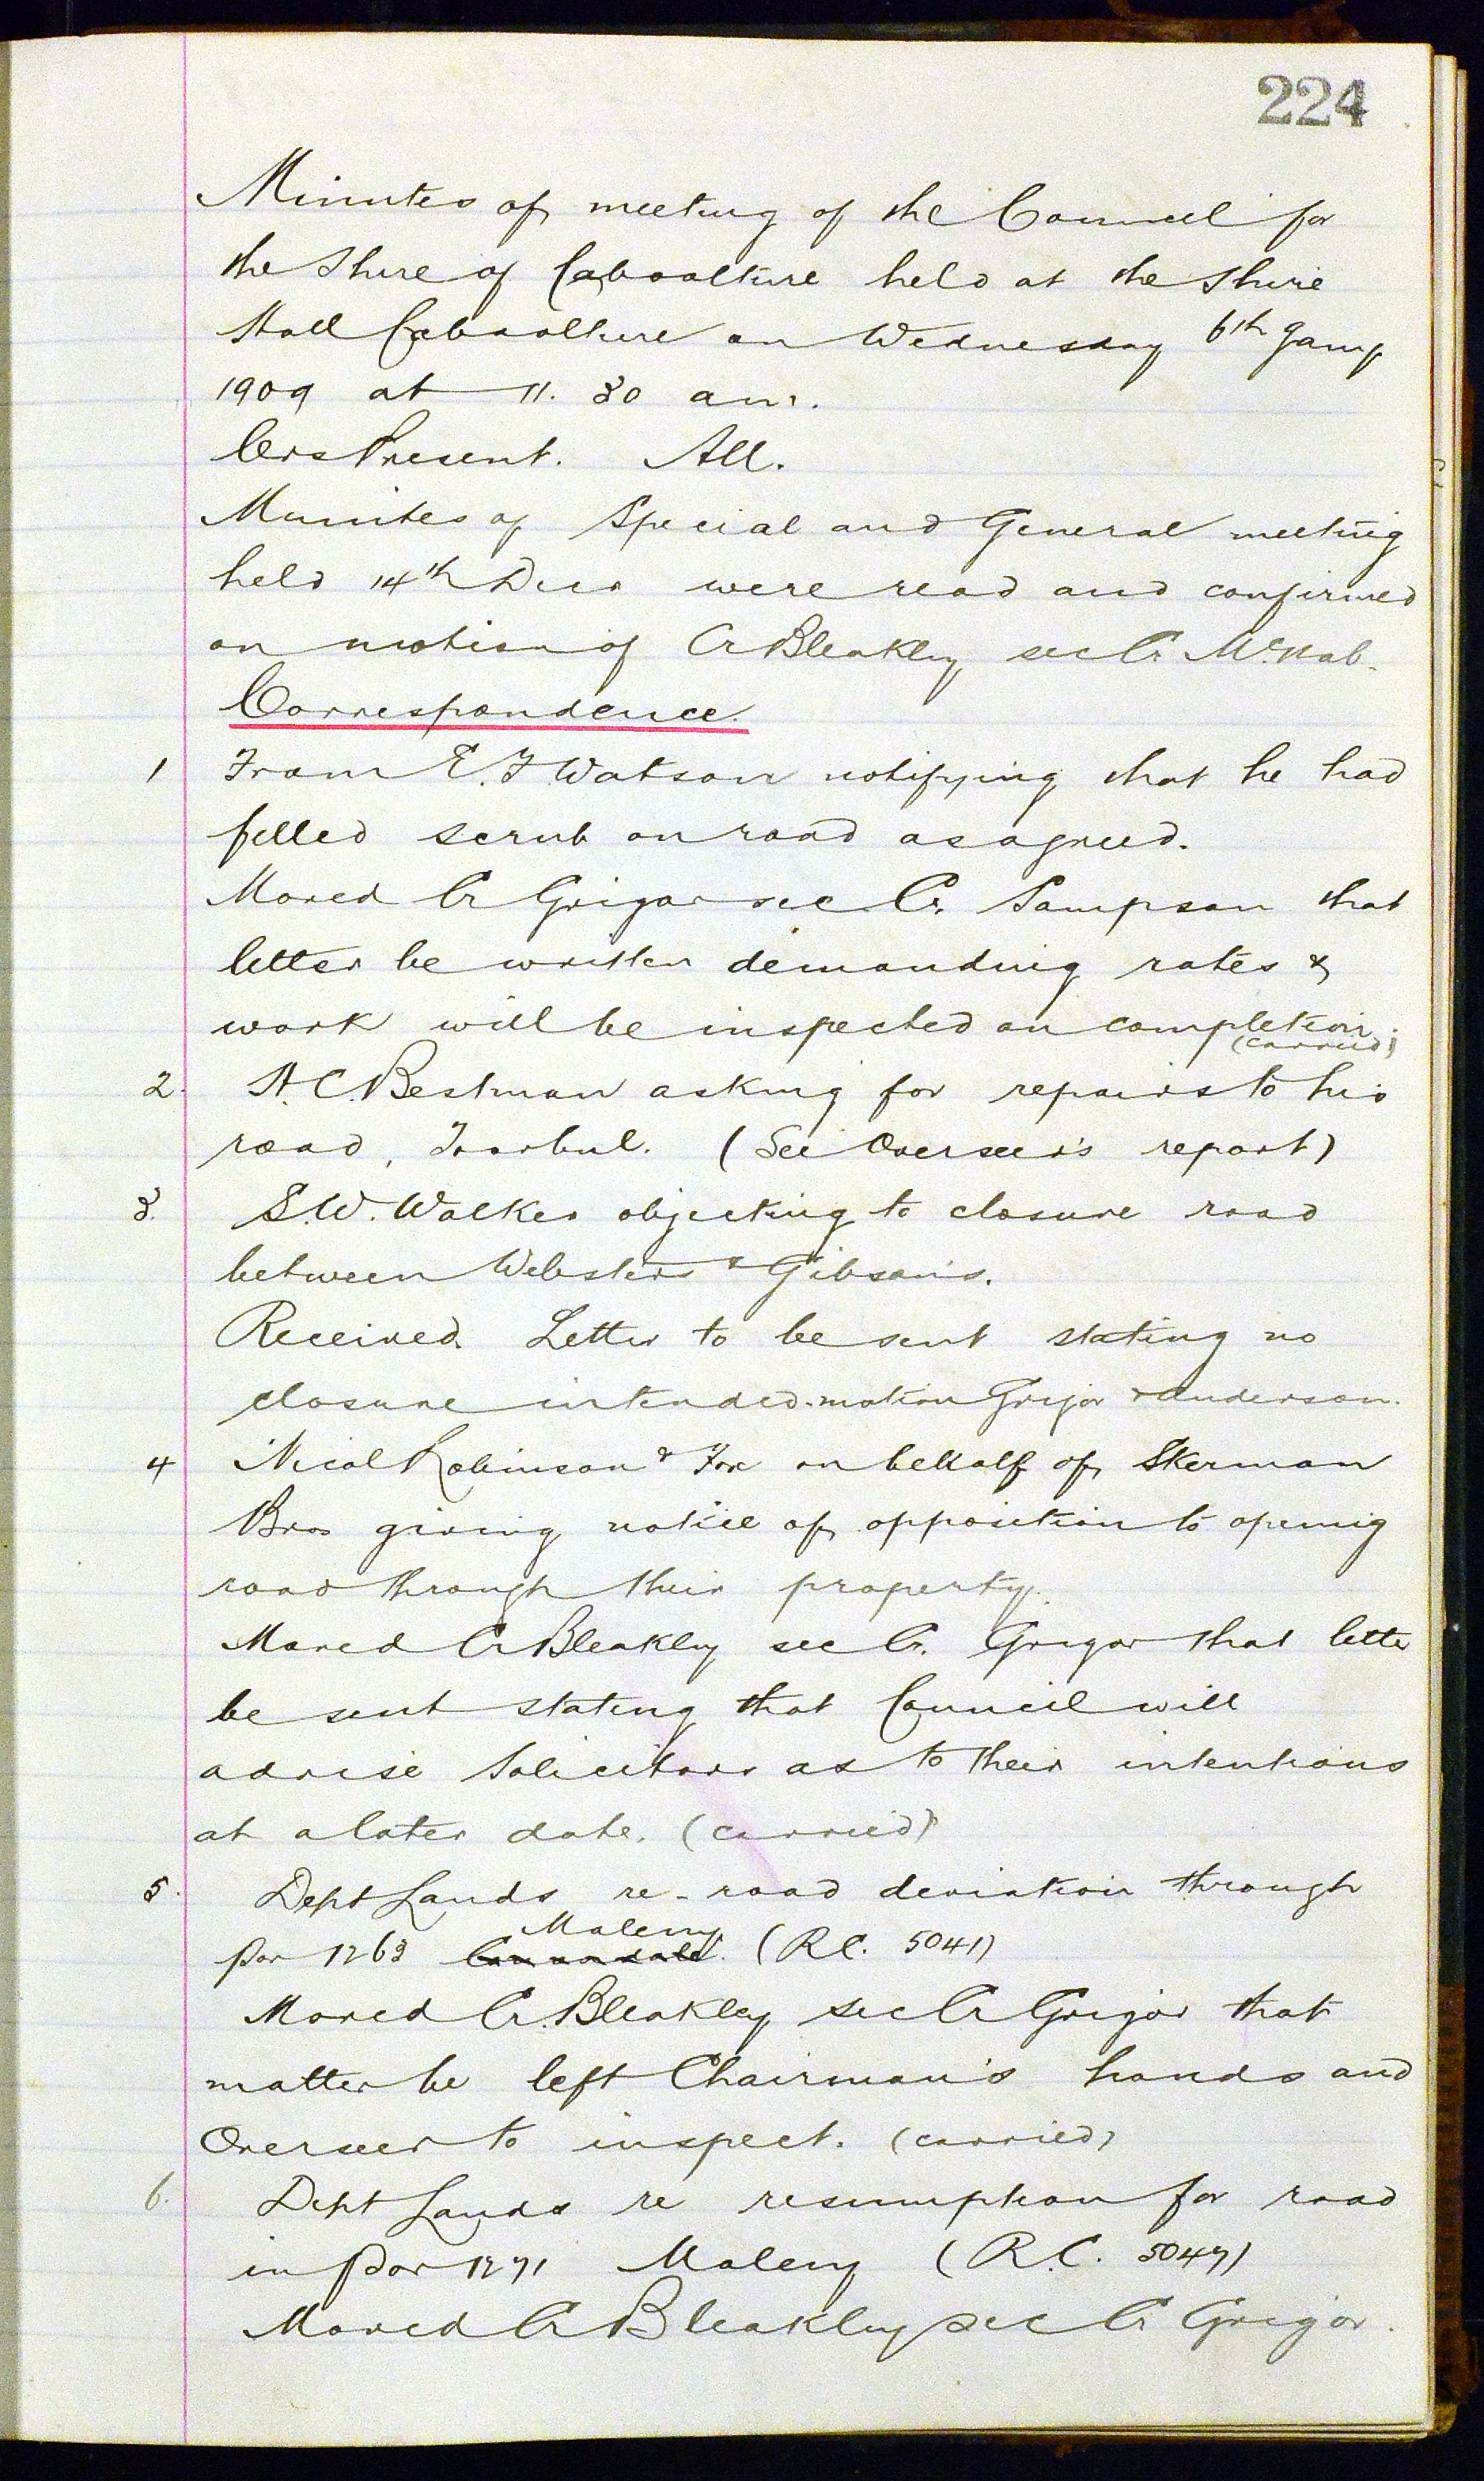 224
Minutes of meeting of the Council for
the Shire of Caboolture held at the Shire
Hall Caboolture on Wednesday 6th Jany
1909 at 11.30 am.
Crs Present. All.
Minutes of Special and General meeting
held 14th Decr were read and confirmed
on motion of Cr Bleakley sec Cr McNab.
Correspondence.
1 From E. F Watson notifying that he had
felled scrub on road as agreed.
Moved Cr Grigor sec Cr. Sampson that
letter be written demanding rates &
work will be inspected on completion.
(carried)
2. H. C. Bestman asking for repairs to his
road, Toorbul. (See Overseer's report)
3. S. W. Walker objecting to closure road
between Websters & Gibson's.
Received. Letter to be sent stating no
closure intended. motion Grigor & Anderson.
4 Nicol Robinson & Fox on behalf of Skerman
Bros giving notice of opposition to opening
road through their property.
Moved Cr Bleakley sec Cr. Grigor that letter
be sent stating that Council will
advise Solicitors as to their intentions
at a later date. (carried)
5. Dept Lands re-road deviation through
Maleny
por 1263 (R.C. 5041)
Moved Cr. Bleakley sec Cr Grigor that
matter be left Chairman's hands and
Overseer to inspect. (carried)
6. Dept Lands re resumption for road
in Por 1271 Maleny (R.C. 5047)
Moved Cr Bleakley sec Cr Grigor.